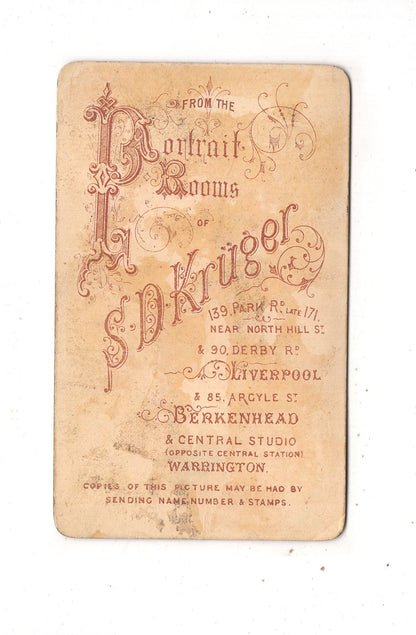 FROM THE
Portrait
Rooms
OF
S.D. Krüger
139, PARK RD. LATE 171.
NEAR NORTH HILL ST
& 90, DERBY RD
LIVERPOOL
& 85, ARGYLE ST
BERKENHEAD
& CENTRAL STUDIO
(OPPOSITE CENTRAL STATION)
WARRINGTON.
COPIES OF THIS PICTURE MAY BE HAD BY
SENDING NAME, NUMBER & STAMPS.